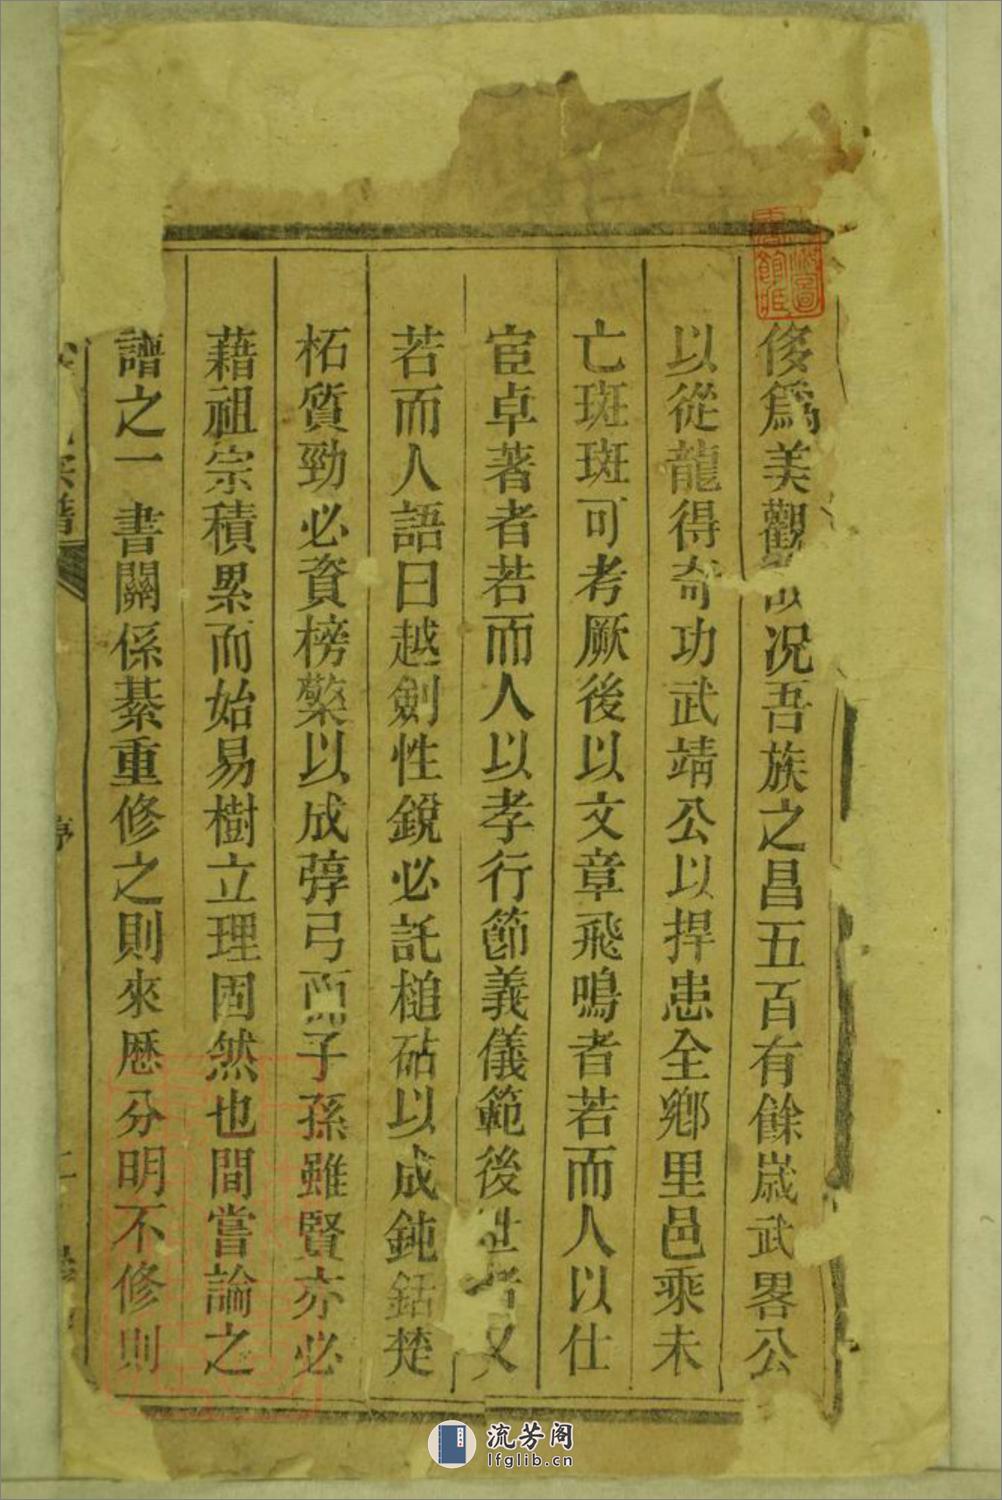 侈爲美觀況吾族之昌五百有餘歲武畧公
以從龍得奇功武靖公以捍患全鄉里邑乘未
亡斑斑可考厥後以文章飛鳴者若而人以仕
宦卓著者若而人以孝行節義儀範後世者又
若而人語曰越劍性銳必託槌砧以成鈍銛楚
柘質勁必資榜檠以成弴弓而子孫雖賢亦必
藉祖宗積累而始易樹立理固然也間嘗論之
譜之一書關係綦重修之則來歷分明不修則
宗譜
序
二
流芳阁
lfglib.cn